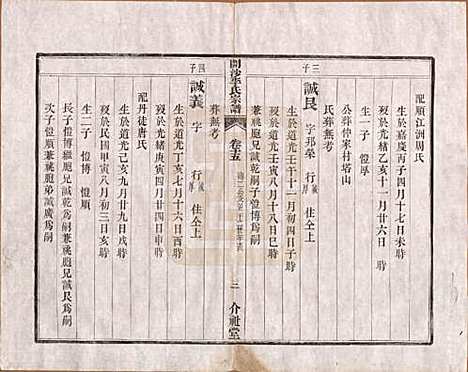 配順江洲周氏
生於嘉慶丙子四月十七日未時
歿於光緒乙亥十一月廿六日　時
生一子　愷厚
公葬仲家村㘭山
氏葬無考
三子
誠艮　字邦榮　行　住仝上
生於道光壬午十一月初四日子時
歿於光緒庚寅四月十八日巳時
兼祧胞兄誠乾嗣子愷博為嗣
葬無考
四子
誠義　字　行　住仝上
生於道光丁亥七月十六日酉時
歿於光緒庚寅四月廿四日申時
配丹徒唐氏
生於道光己亥九月廿九日戌時
歿於民國甲寅八月初三日亥時
生二子　愷博　愷順
長子愷博繼胞兄誠乾為嗣兼祧胞兄誠艮為嗣
次子愷順兼祧胞弟誠廣為嗣
開沙李氏宗譜
卷五
三
介祉堂